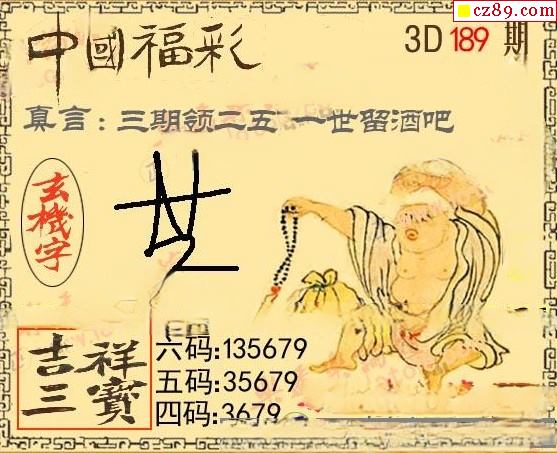 cz89.com
中國福彩
3D 189 期
真言：三期领二五 一世留酒吧
玄機字
世
吉祥
三寶
六码:135679
五码:35679
四码:3679